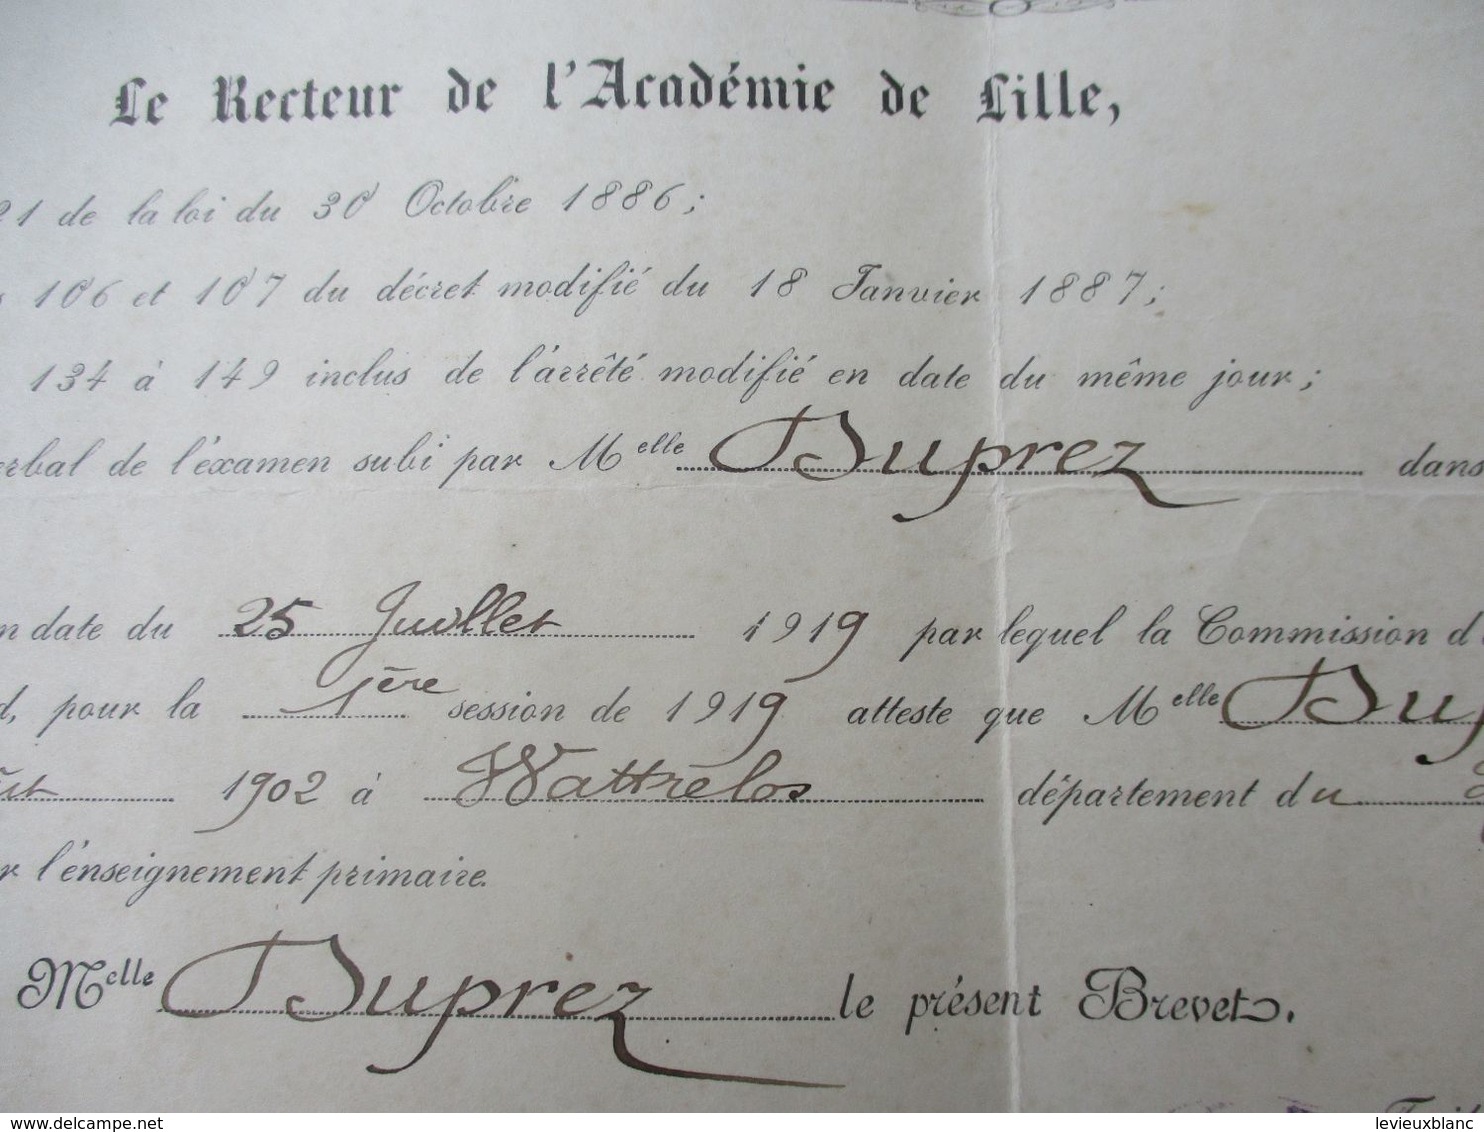 Le Recteur de l'Académie de Lille,
21 de la loi du 30 Octobre 1886;
106 et 107 du décret modifié du 18 Janvier 1887;
134 à 149 inclus de l'arrêté modifié en date du même jour;
erbal de l'examen subi par Melle Duprez dans
n date du 25 Juillet 1919 par lequel la Commission d'
d, pour la 1ère session de 1919 atteste que Melle Dup
1902 à Wattrelos département du
r l'enseignement primaire.
Melle Duprez le présent Brevet.
delcampe.net
levieuxblanc